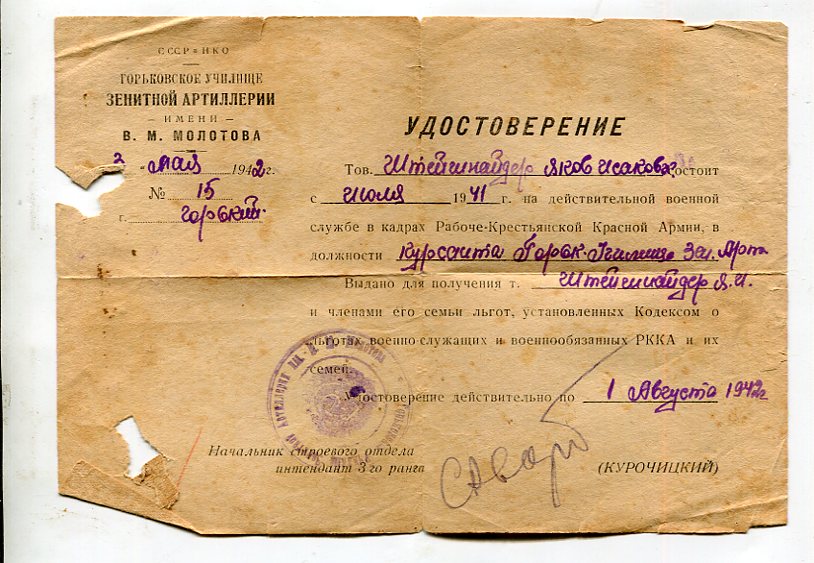 СССР • НКО
ГОРЬКОВСКОЕ УЧИЛИЩЕ
ЗЕНИТНОЙ АРТИЛЛЕРИИ
— ИМЕНИ —
В. М. МОЛОТОВА
2 " мая 1942г.
№ 15
г. Горький
УДОСТОВЕРЕНИЕ
Тов. Штейншнайдер Яков Исаков состоит
с Июля 1941 г. на действительной военной
службе в кадрах Рабоче-Крестьянской Красной Армии, в
должности Курсанта Горьк. Училища Зен. Арт
Выдано для получения т. Штейншнайдер Я.И.
и членами его семьи льгот, установленных Кодексом о
льготах военно-служащих и военнообязанных РККА и их
семей.
Удостоверение действительно по 1 Августа 1942г
Начальник строевого отдела
интендант 3-го ранга
(КУРОЧИЦКИЙ)